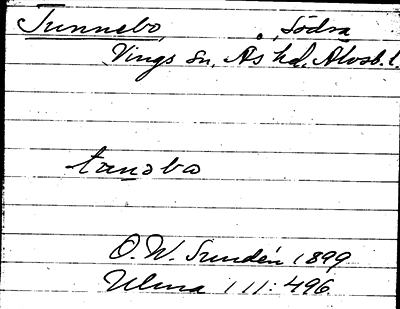 Tunnebo, Södra
Vings sn, Ås hd, Älvsb. l.
tanəbo
O. W. Sundén 1899
Ulma 111:496